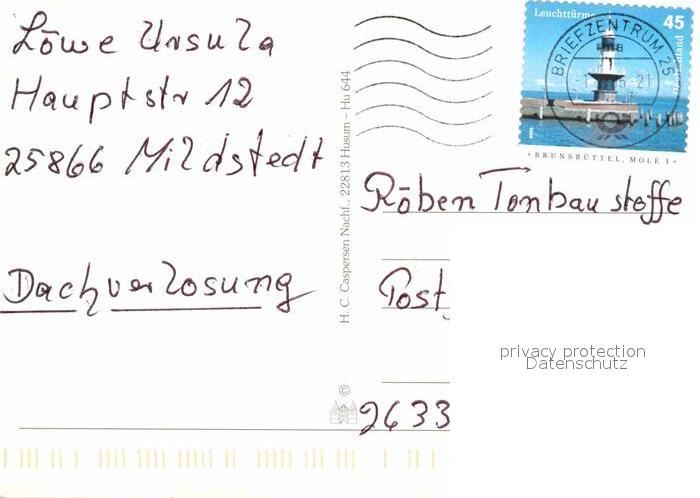 Löwe Ursula
Hauptstr 12
25866 Mildstedt
Dachverlosung
H. C. Caspersen Nachf., 22813 Husum – Hu 644
©
Leuchttürme
45
BRIEFZENTRUM 25
BRUNSBÜTTEL, MOLE 1
Röben Tonbaustoffe
Post
privacy protection
Datenschutz
2633